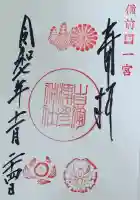 備前國一宮
奉拝
吉備津彦神社
令和六年十一月二十四日